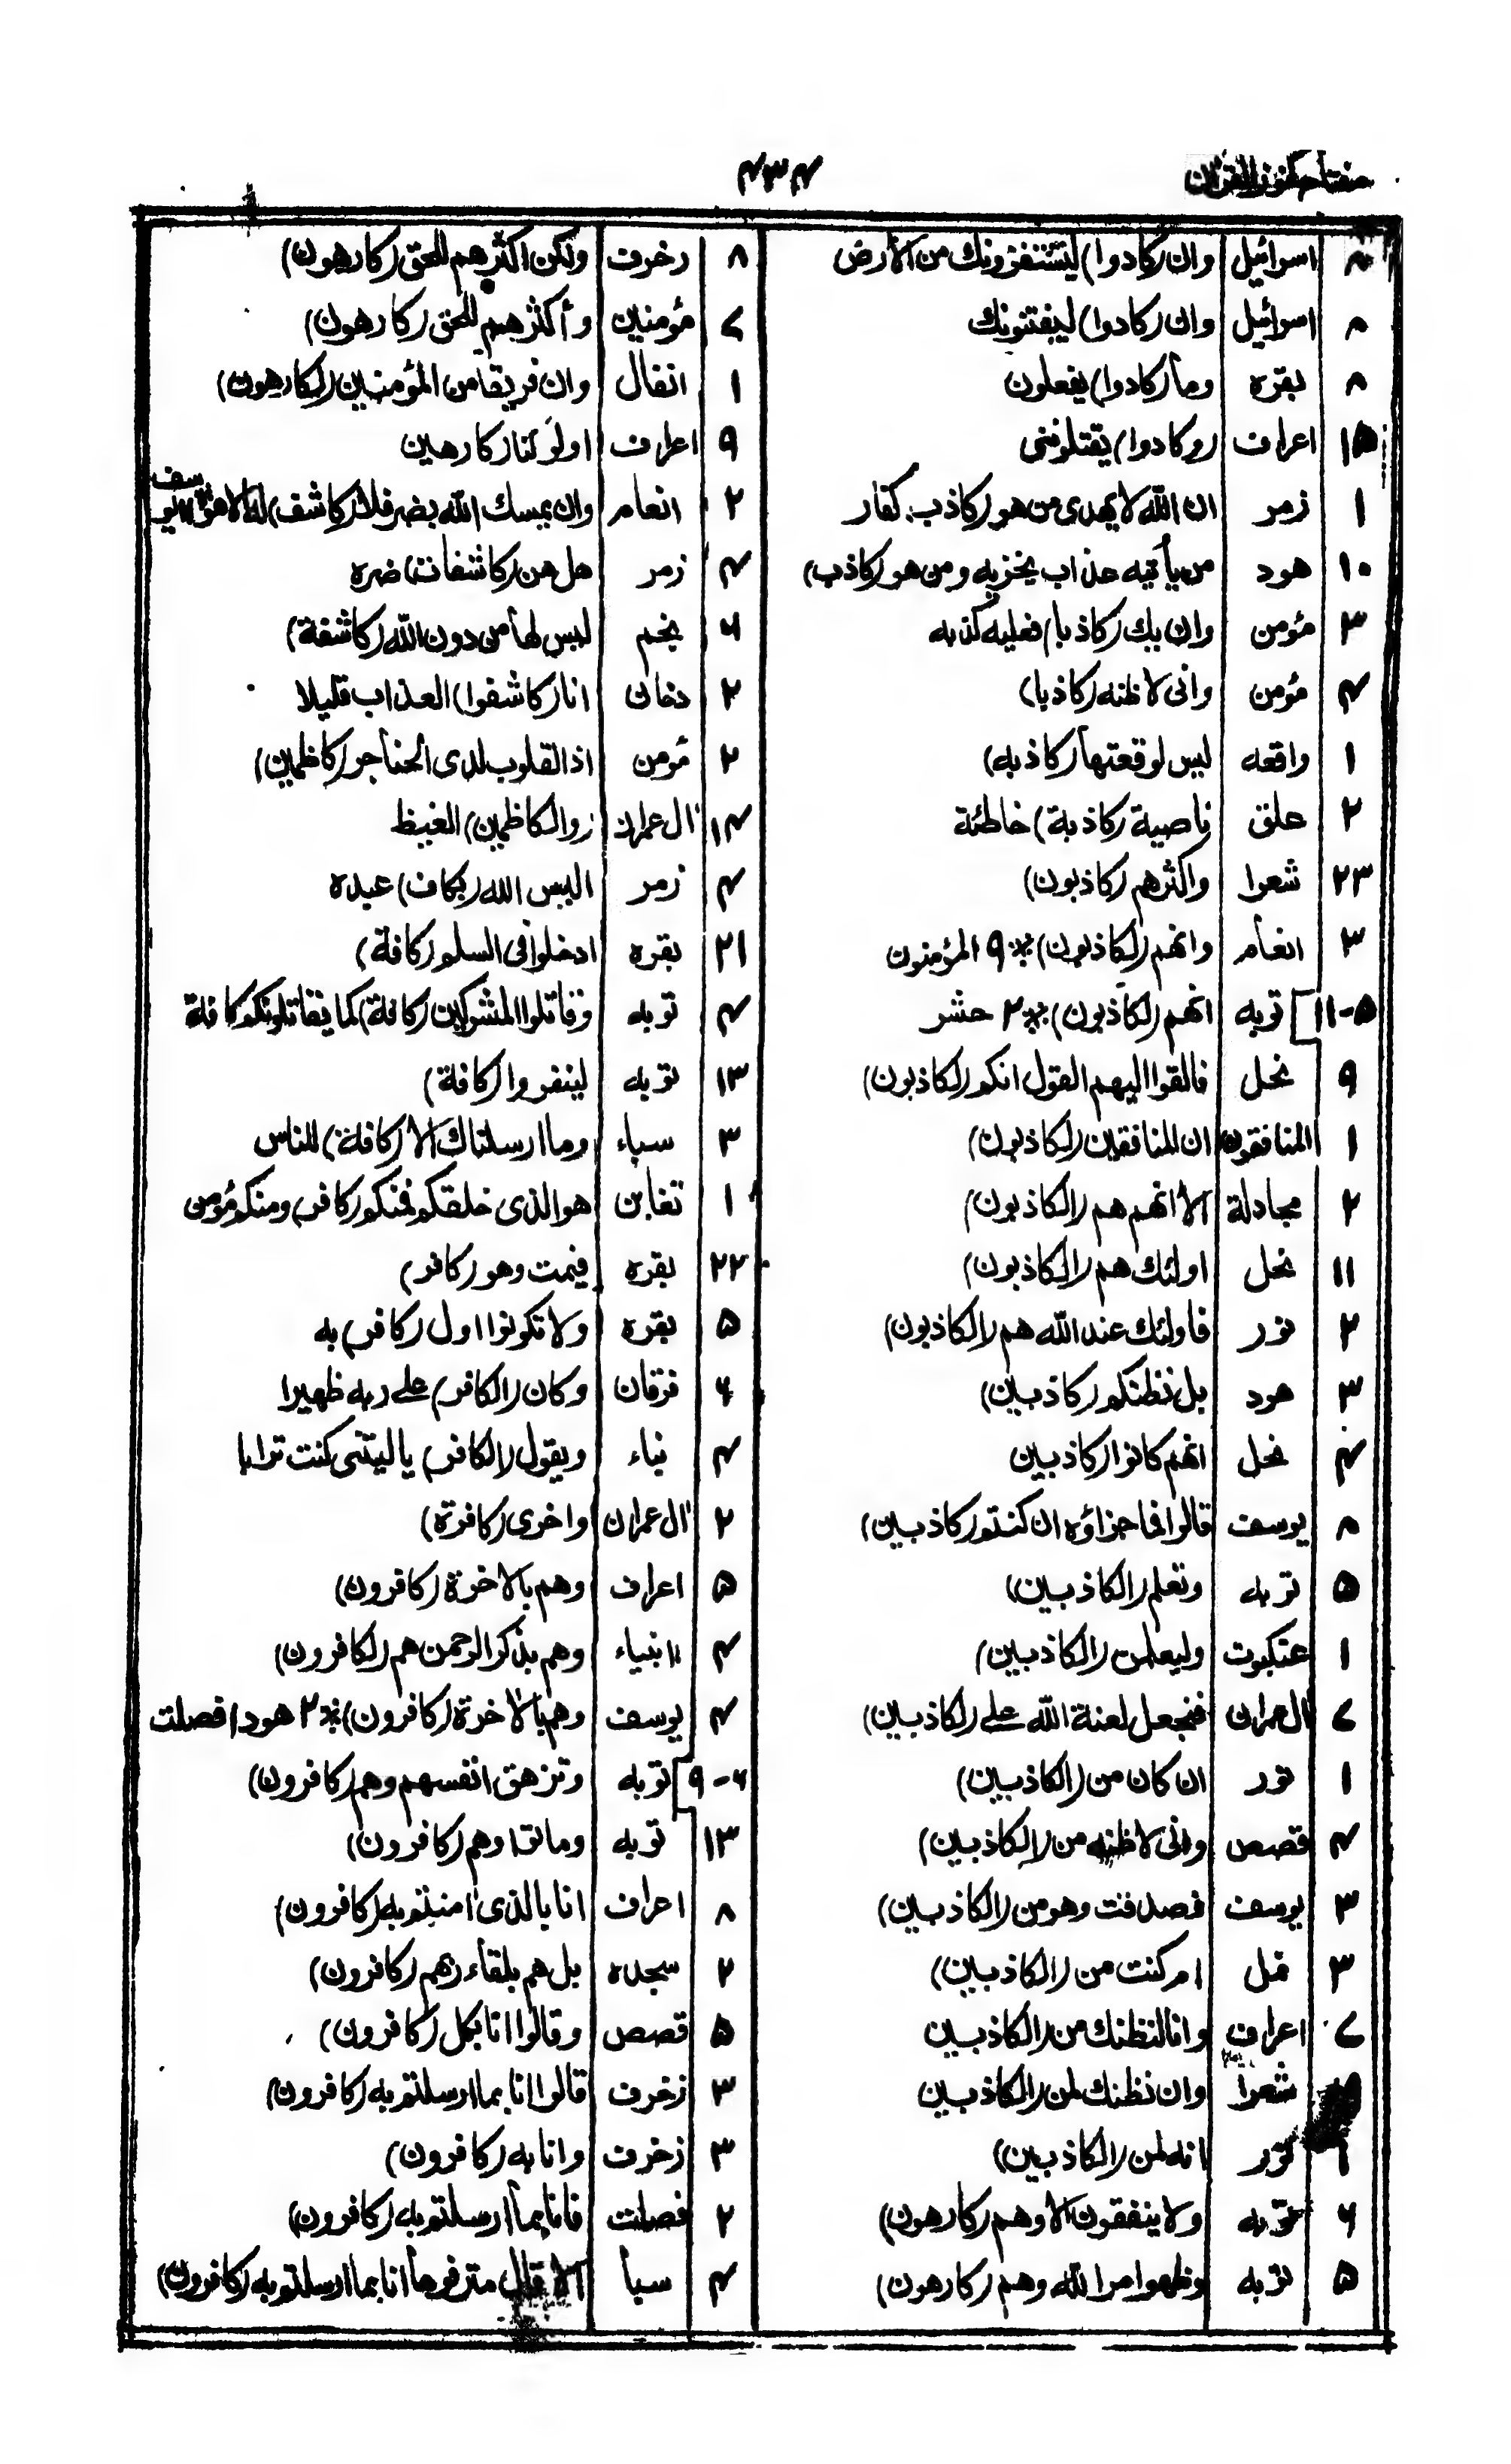 مفتاح كنوز القرآن
۴۳۴
۸ اسرائیل وان (كادوا) لیستفزونك من الأرض
۸ اسرائیل وان (كادوا) لیفتنونك
۸ بقره وما (كادوا) یفعلون
۱۵ اعراف (وكادوا) یقتلوننی
۱ زمر ان الله لا یهدی من هو (كاذب) كفار
۱۰ هود من یأتیه عذاب یخزیه ومن هو (كاذب)
۳ مؤمن وان یك (كاذبا) فعلیه كذبه
۴ مؤمن وانی لاظنه (كاذبا)
۱ واقعه لیس لوقعتها (كاذبه)
۲ علق ناصیة (كاذبة) خاطئة
۲۳ شعرا واكثرهم (كاذبون)
۳ انعام وانهم (لكاذبون) * ۹ المؤمنون
۱۱-۵ توبه انهم (لكاذبون) * ۲ حشر
۹ نحل فالقوا الیهم القول انكم (لكاذبون)
۱ المنافقون ان المنافقین (لكاذبون)
۲ مجادلة الا انهم هم (الكاذبون)
۱۱ نحل اولئك هم (الكاذبون)
۲ نور فاولئك عند الله هم (الكاذبون)
۳ هود بل نظنكم (كاذبین)
۴ نحل انهم كانوا (كاذبین
۸ یوسف قالوا فما جزاؤه ان كنتم (كاذبین)
۵ توبه وتعلم (الكاذبین)
۱ عنكبوت ولیعلمن (الكاذبین)
۷ ال عمران فنجعل لعنة الله علی (الكاذبین)
۱ نور ان كان من (الكاذبین)
۴ قصص وانی لاظنه من (الكاذبین)
۳ یوسف فصدقت وهو من (الكاذبین)
۳ نمل ام كنت من (الكاذبین)
۷ اعراف وانا لنظنك من (الكاذبین
شعرا وان نظنك لمن (الكاذبین
۱ نور انه لمن (الكاذبین)
۶ توبه ولا ینفقون الا وهم (كارهون)
۵ توبه وظهر امر الله وهم (كارهون)
۸ زخرف ولكن اكثرهم للحق (كارهون)
۷ مؤمنین وأكثرهم للحق (كارهون)
۱ انفال وان فریقا من المؤمنین (لكارهون)
۹ اعراف اولو كنا (كارهین
۲ انعام وان یمسك الله بضر فلا (كاشف) له الا هو یوسف
۴ زمر هل هن (كاشفات) ضره
۶ نجم لیس لها من دون الله (كاشفة)
۲ دخان انا (كاشفوا) العذاب قلیلا
۲ مؤمن اذ القلوب لدی الحناجر (كاظمین)
۱۴ ال عمران (والكاظمین) الغیظ
۴ زمر الیس الله (بكاف) عبده
۲۱ بقره ادخلوا فی السلم (كافة)
۴ توبه وقاتلوا المشركین (كافة) كما یقاتلونكم كافة
۱۳ توبه لینفروا (كافة)
۳ سباء وما ارسلناك الا (كافة) للناس
۱ تغابن هو الذی خلقكم فمنكم (كافر) ومنكم مؤمن
۲۲ بقره فیمت وهو (كافر)
۵ بقره ولا تكونوا اول (كافر) به
۶ فرقان وكان (الكافر) علی ربه ظهیرا
۴ نباء ویقول (الكافر) یا لیتنی كنت ترابا
۲ ال عمران واخری (كافرة)
۵ اعراف وهم بالاخرة (كافرون)
۴ انبیاء وهم بذكر الرحمن هم (كافرون)
۴ یوسف وهم بالاخرة (كافرون) * ۲ هود ا فصلت
۹-۶ توبه وتزهق انفسهم وهم (كافرون)
۱۳ توبه وماتوا وهم (كافرون)
۸ اعراف انا بالذی امنتم به (كافرون)
۲ سجده بل هم بلقاء ربهم (كافرون)
۵ قصص وقالوا انا بكل (كافرون)
۳ زخرف قالوا انا بما ارسلتم به (كافرون)
۳ زخرف وانا به (كافرون)
۲ فصلت فانا بما أرسلتم به (كافرون)
۴ سبأ الا قال مترفوها أنا بما ارسلتم به (كافرون)